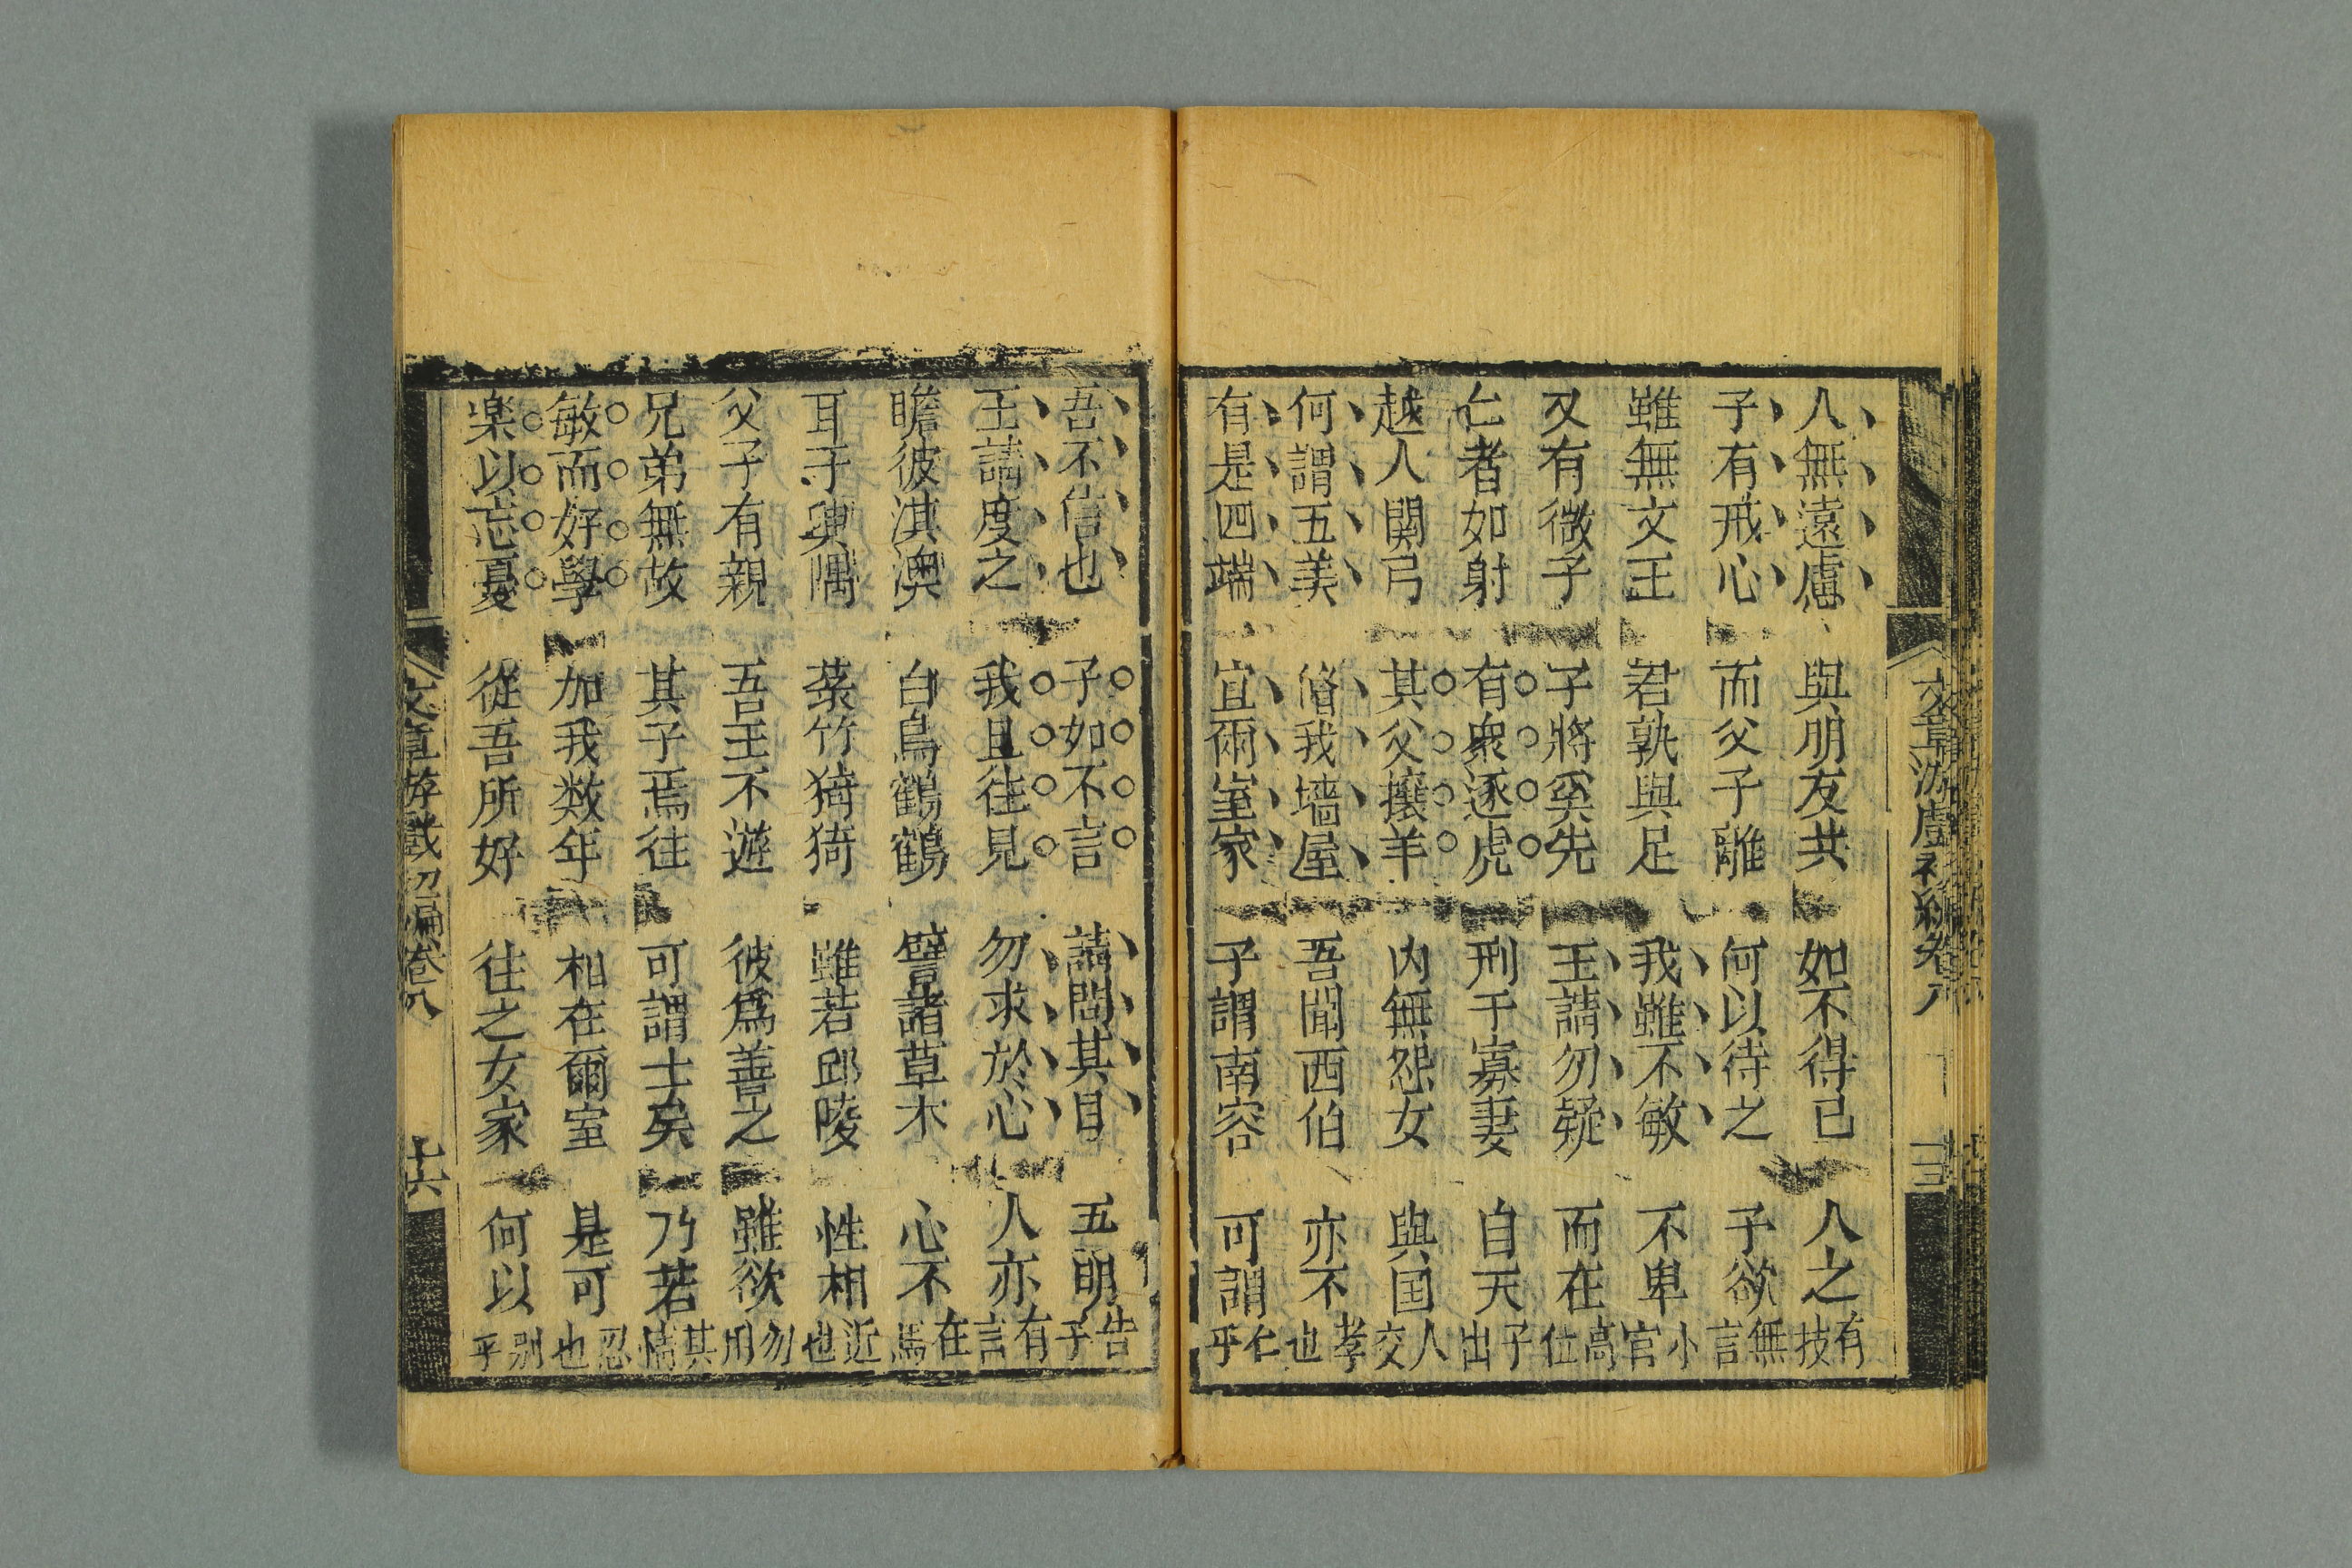 人無遠慮 與朋友共 如不得已 人之有技
子有戒心 而父子離 何以待之 子欲無言
雖無文王 君孰與足 我雖不敏 不卑小官
又有微子 子將奚先 王請勿疑 而在高位
仁者如射 有衆逐虎 刑于寡妻 自天子出
越人関弓 其父攘羊 内無怨女 與国人交
何謂五美 脩我墻屋 吾聞西伯 亦不孝也
有是四端 宜爾室家 子謂南容 可謂仁乎
吾不信也 子如不言 請問其目 五朋告子
王請度之 我且徃見 勿求於心 人亦有言
瞻彼淇澳 白鳥鶴鶴 譬諸草木 心不在焉
耳 菉竹猗猗 雖若邱陵 性相近也
父子有親 吾王不遊 彼爲善之 雖欲勿用
兄弟無故 其子焉徃 可謂士矣 乃若其情
敏而好學 加我数年 相在爾室 是可忍也
楽以忘憂 從吾所好 徃之女家 何以别乎
文章游戲 初編卷八 十六